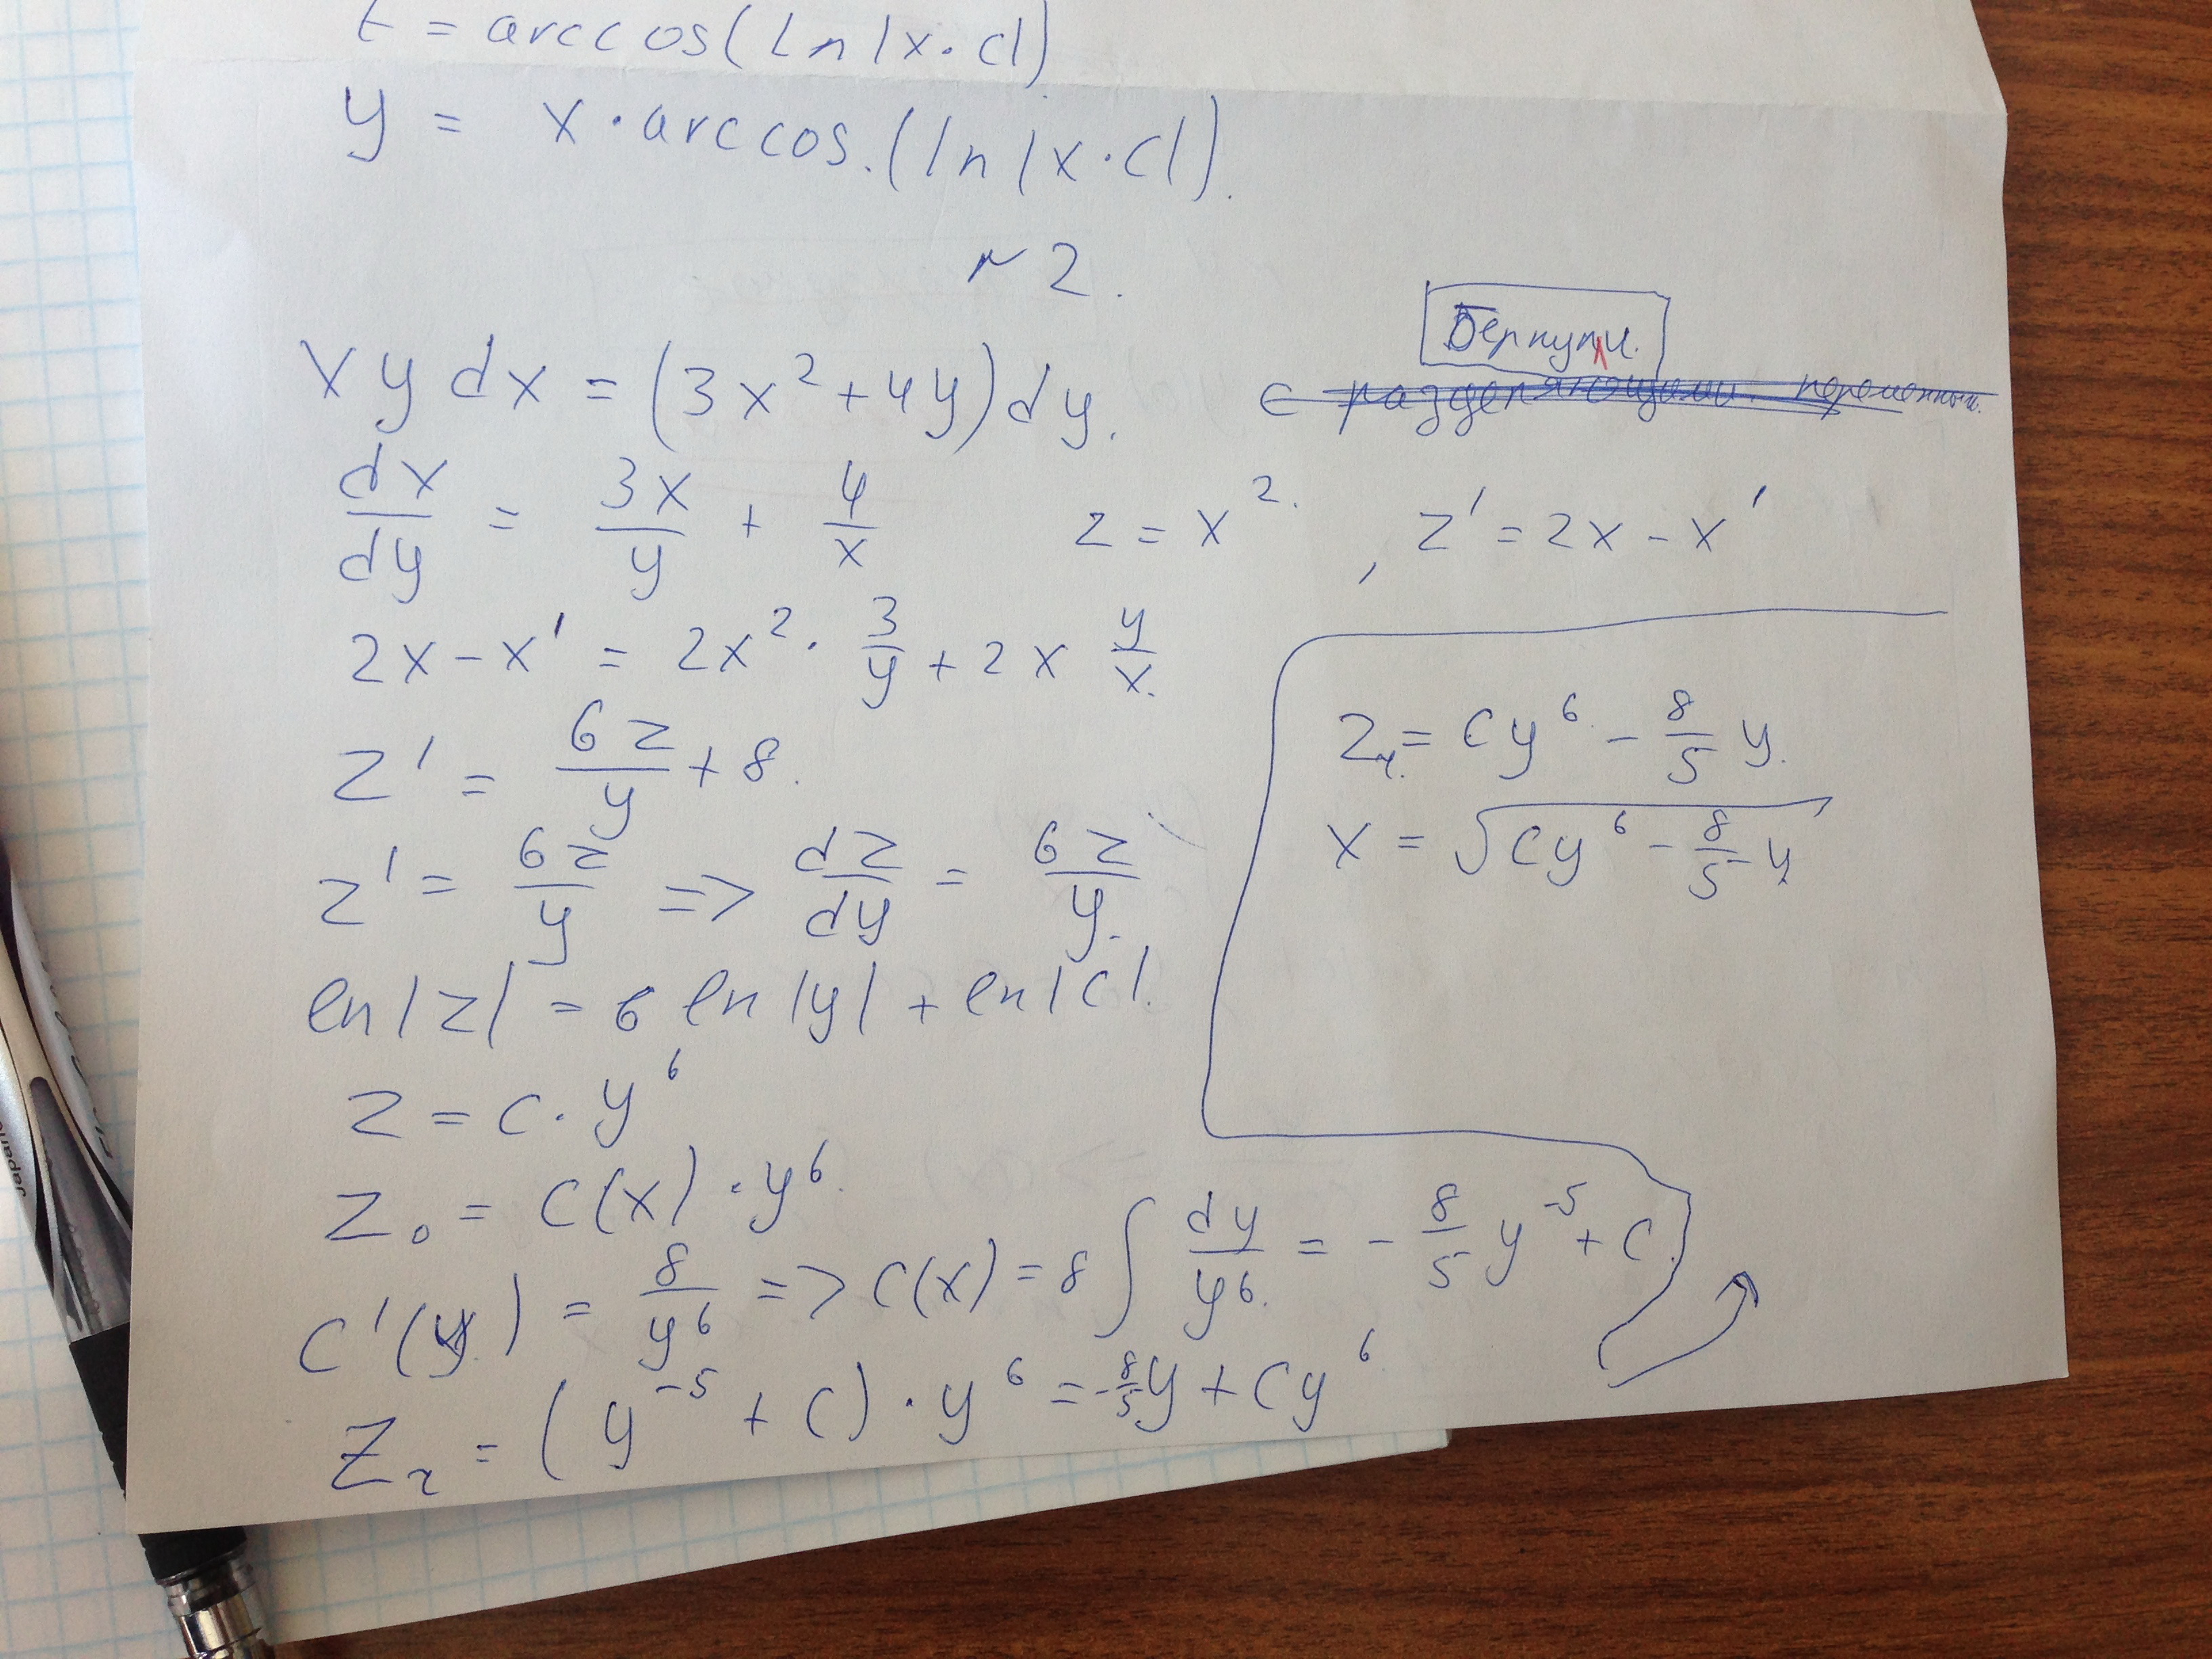 t = arccos(ln|x·c|)
y = x·arccos.(ln|x·c|).
№2.
Бернули.
xy dx = (3x² + 4y)dy.
с разделяющими переменным.
dx/dy = 3x/y + 4/x   z = x². , z' = 2x - x'
2x - x' = 2x² · 3/y + 2x y/x.
z' = 6z/y + 8.
z' = 6z/y => dz/dy = 6z/y.
ln|z| = 6 ln|y| + ln|c|.
z = c·y⁶
z₀ = c(x)·y⁶.
c'(y) = 8/y⁶ => c(x) = 8∫dy/y⁶. = -8/5 y⁻⁵ + c.
z = (y⁻⁵ + c)·y⁶ = -8/5 y + cy⁶
z = cy⁶ - 8/5 y.
x = √(cy⁶ - 8/5 y)
Japan